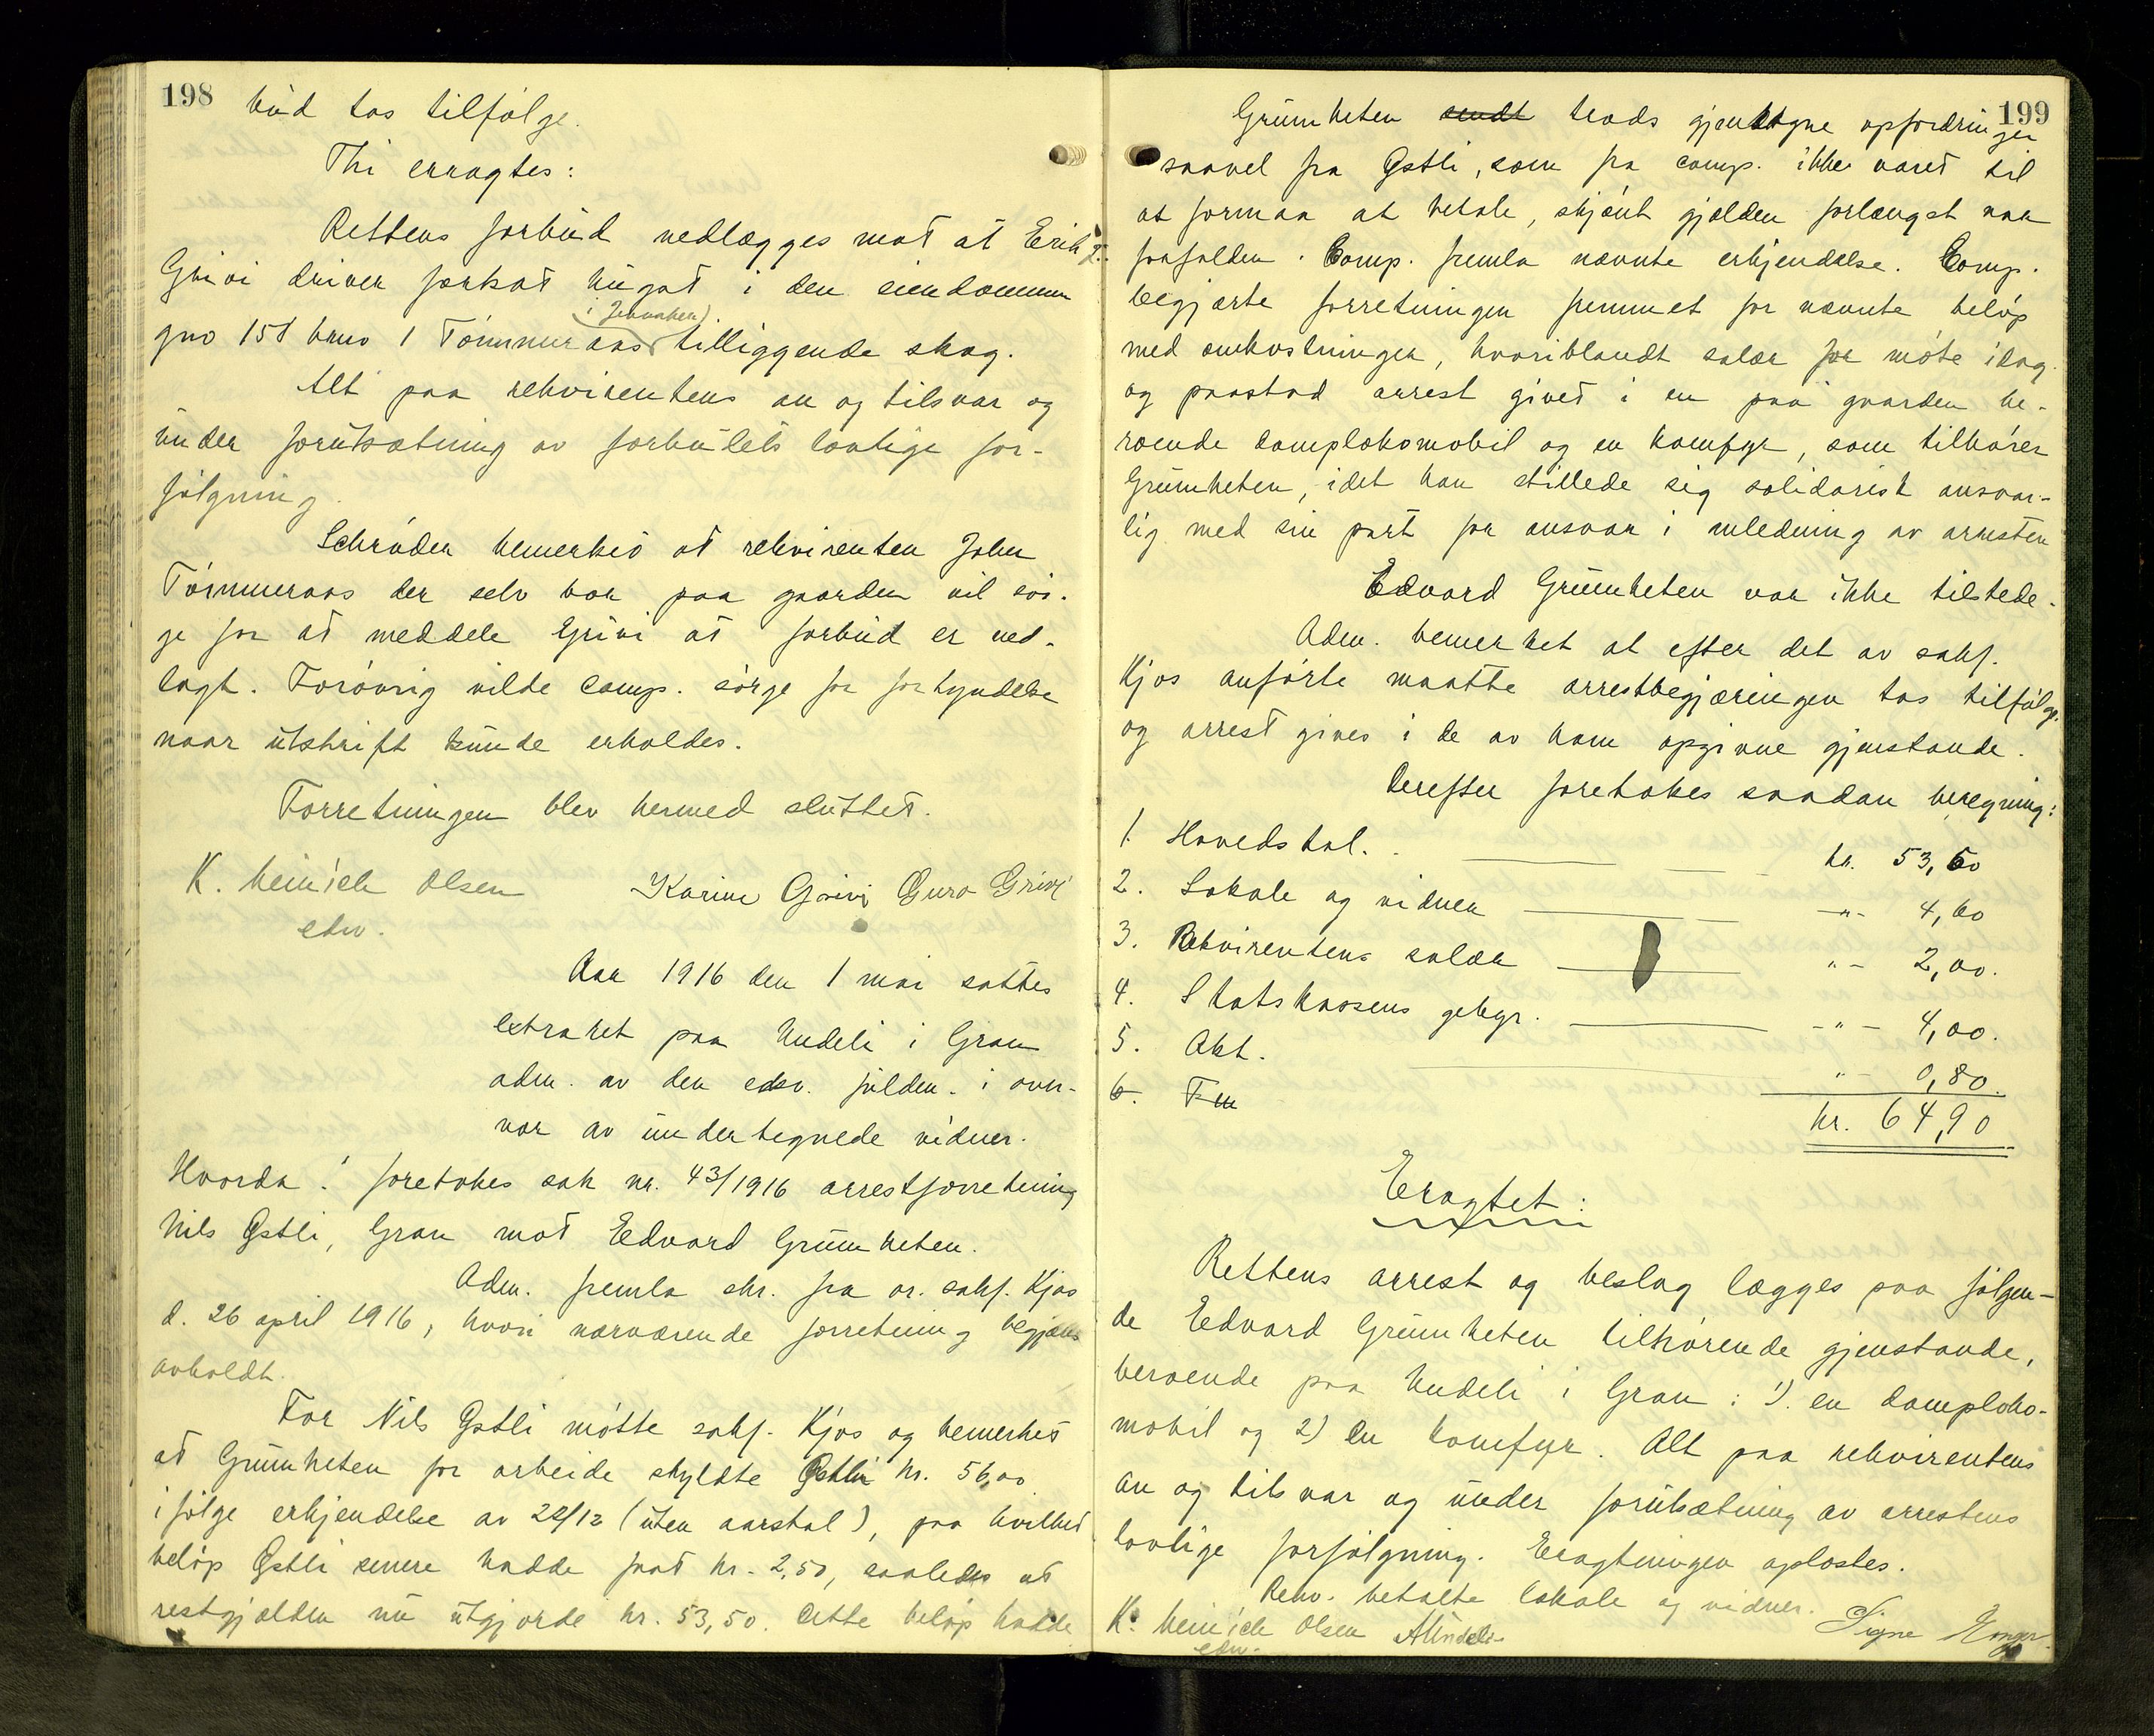 198
bud tas tilfølge.
Thi erragtes:
Rettens forbud nedlægges mot at Erik T.
Grivi driver fortsat hugst i den eiendommen
(i Jevnaker)
gno 151 brno 1 Tømmeraas tilliggende skog.
Alt paa rekvirentens an og tilsvar og
under forutsætning av forbudets lovlige for-
følgning.
Schrøder bemerket at rekvirenten John
Tømmeraas der selv bor paa gaarden vil sør-
ge for at meddele Grivi at forbud er ned-
lagt. Forøvrig vilde comp. sørge for forkyndelse
naar utskrift kunde erholdes.
Forretningen blev hermed sluttet.
K. Heinrich Olsen Karine Grivi Guro Grivi
edsv.
Aar 1916 den 1 mai sattes
extraret paa Undeli i Gran
adm. av den edsv. fuldm. i over-
vær av undertegnede vidner.
Hvorda: foretokes sak nr. 43/1916 arrestforretning
Nils Østli, Gran mot Edvard Grumheten.
Adm. fremla skr. fra or. sakf. Kjos
d. 26 april 1916, hvori nærværende forretning begjæres
avholdt.
For Nils Østli møtte sakf. Kjos og bemerket
at Grumheten for arbeide skyldte Østli kr. 56,00
ifølge erkjendelse av 22/12 (uten aarstal), paa hvilket
beløp Østli senere hadde faat kr. 2,50, saaledes at
restgjælden nu utgjorde kr. 53,50. Dette beløp hadde
199
Grumheten sendt trods gjentagne opfordringer
saavel fra Østli, som fra comp. ikke været til
at formaa at betale, skjønt gjælden forlængst var
forfalden. Comp. fremla nævnte erkjendelse. Comp.
begjærte forretningen fremmet for nævnte beløp
med omkostninger, hvoriblandt salær for møte idag
og paastod arrest givet i en paa gaarden be-
roende damplokomobil og en komfyr, som tilhører
Grumheten, idet han stillede sig solidarisk ansvar-
lig med sin part for ansvar i anledning av arresten
Edvard Grumheten var ikke tilstede.
Adm. bemerket at efter det av sakf.
Kjos anførte maatte arrestbegjæringen tas tilfølge
og arrest gives i de av ham opgivne gjenstande.
Derefter foretokes saadan beregning:
1. Hovedstol. kr. 53,50
2. Lokale og vidner -"- 4,60
3. Rekvirentens salær "- 2,00.
4. Statskassens gebyr. -"- 4,00.
5. Akt. "- 0,80.
6. Fm
kr. 64,90
Eragtet:
Rettens arrest og beslag lægges paa følgen-
de Edvard Grumheten tilhørende gjenstande,
beroende paa Undeli i Gran: 1). en damploko-
mobil og 2) en komfyr. Alt paa rekvirentens
an og tilsvar og under forutsætning av arrestens
lovlige forfølgning. Eragtningen oplæstes.
Rekv. betalte lokale og vidner.
K. Heinrich Olsen A Undeli Signe
edsv.